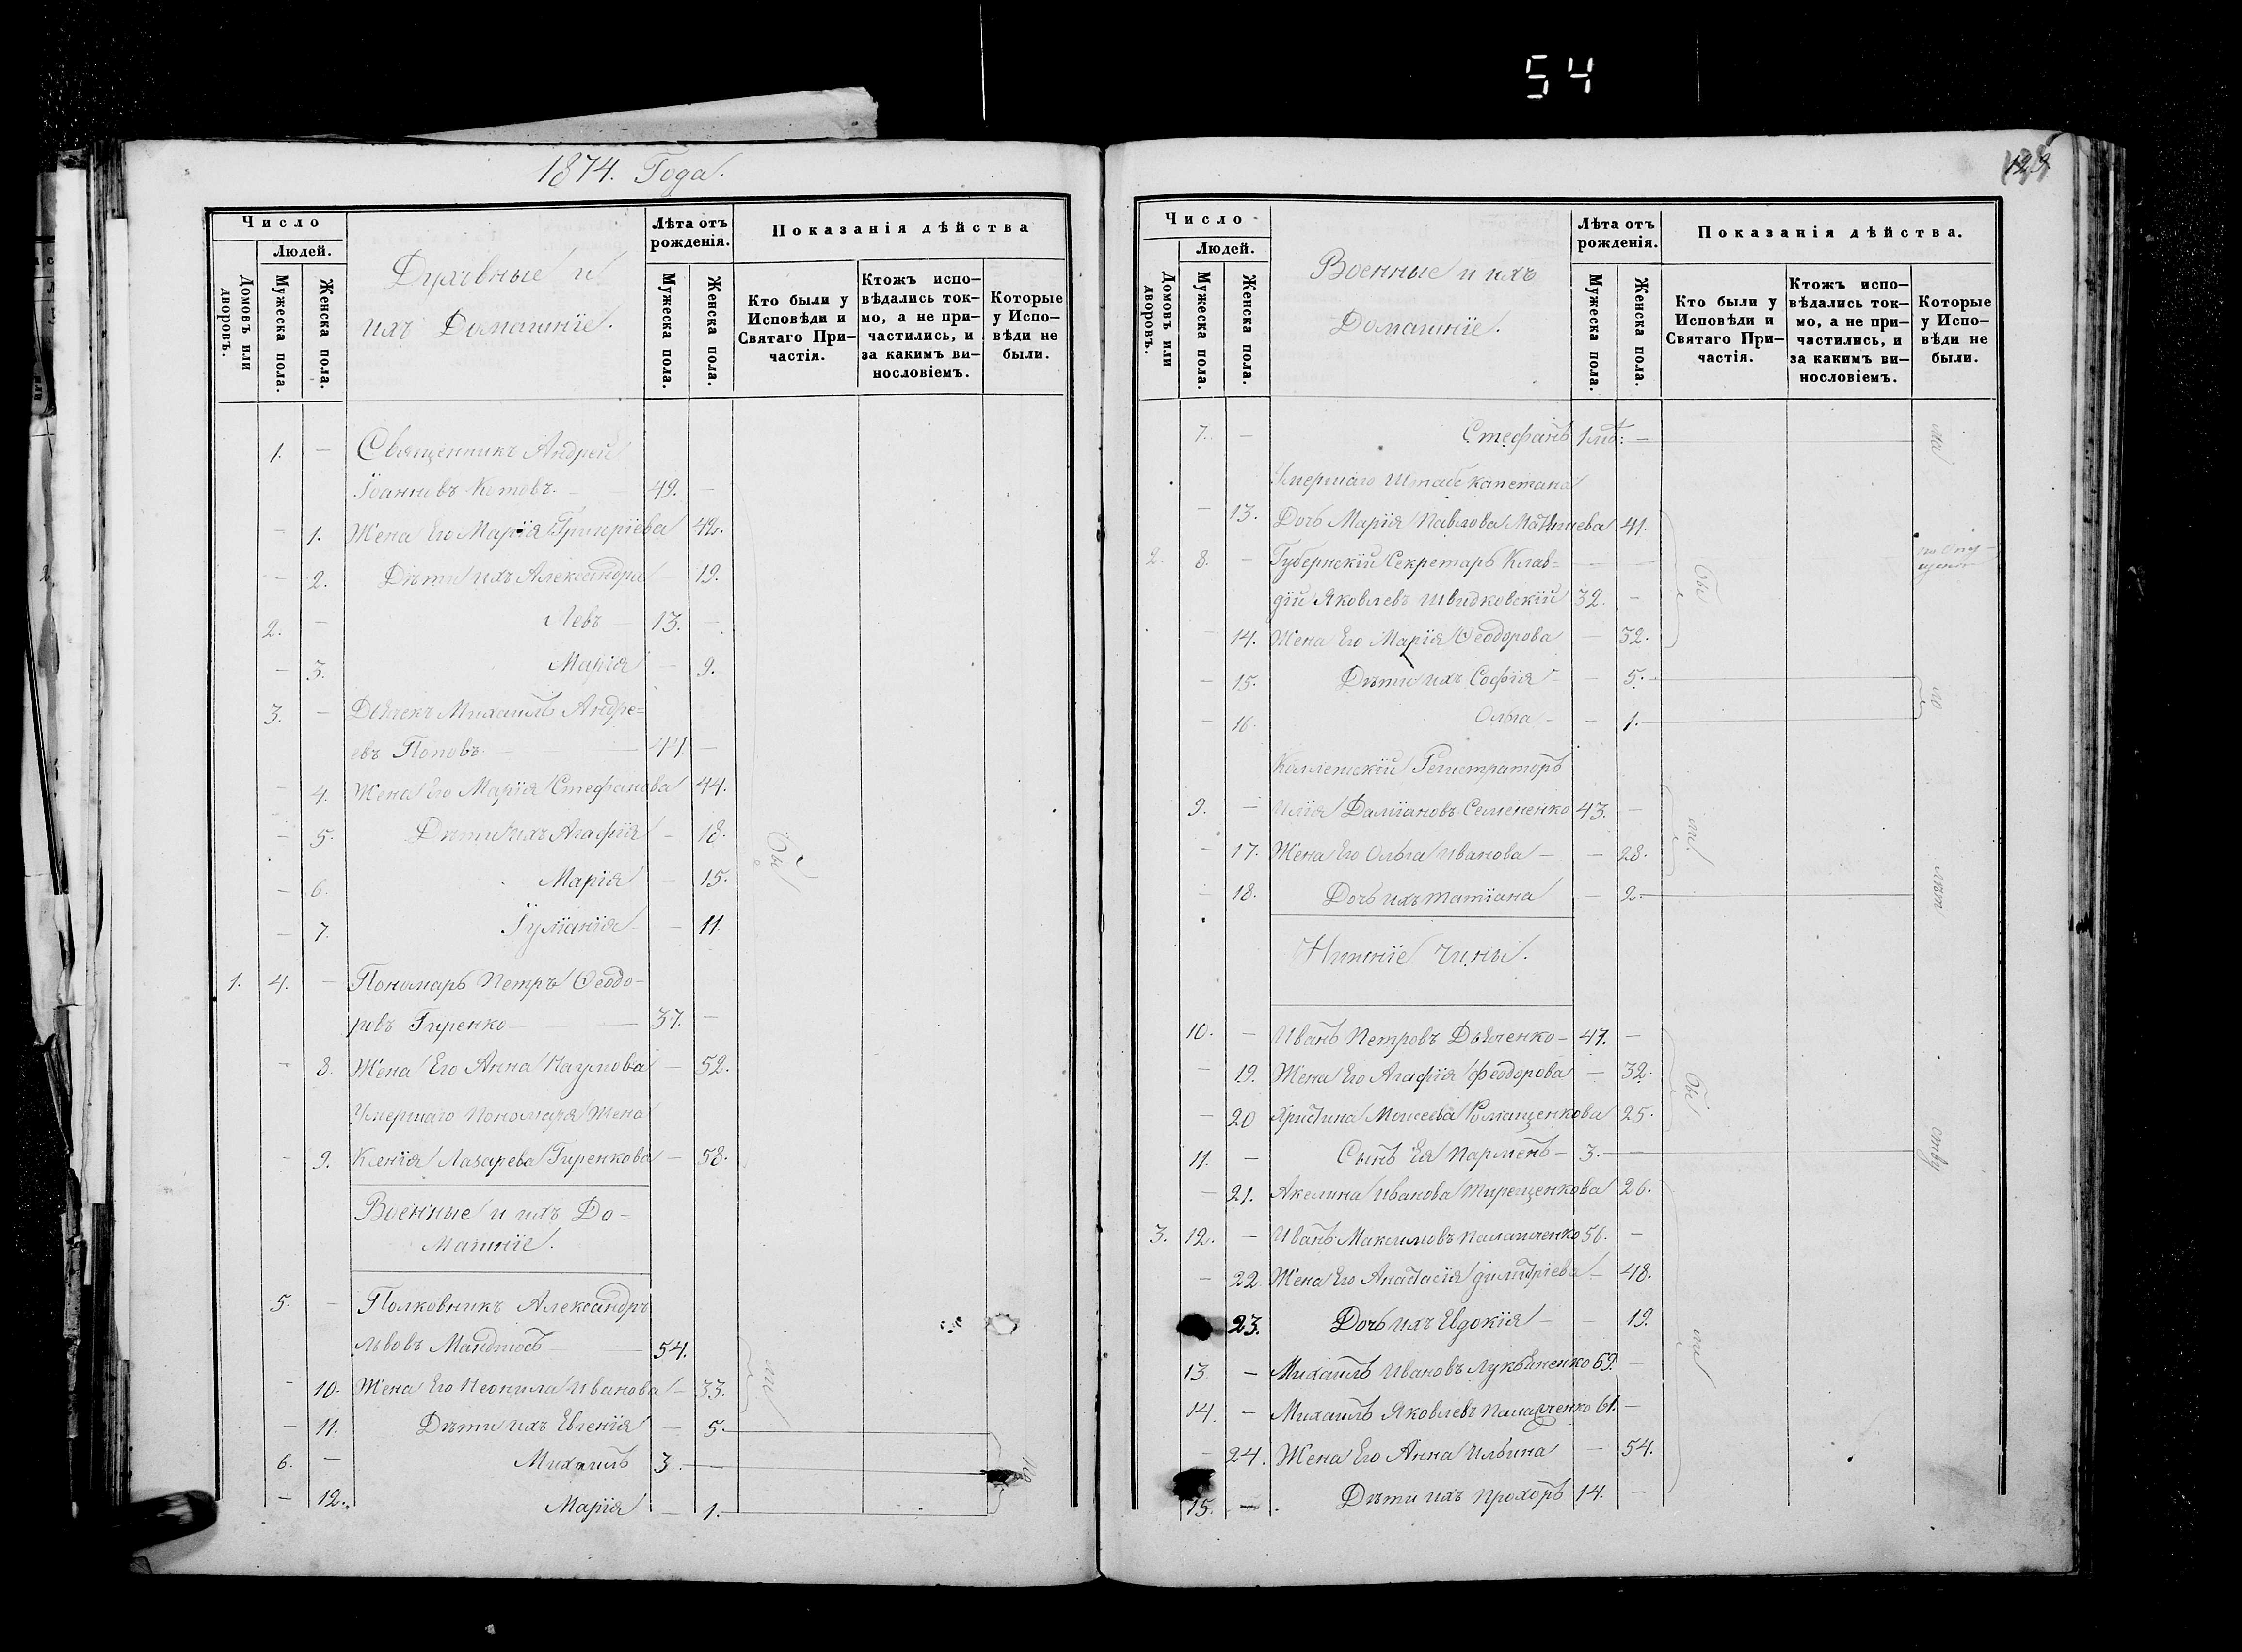 54
1874. Года.
Число
Людей.
Домовъ или дворовъ.
Мужеска пола.
Женска пола.
Духовные и
ихъ Домашніе.
Лѣта отъ рожденія.
Мужеска пола.
Женска пола.
Показанія дѣйства
Кто были у Исповѣди и Святаго При-частія.
Ктожъ испо-вѣдались ток-мо, а не при-частились, и за какимъ ви-нословіемъ.
Которые у Испо-вѣди не были.
1. — Священникъ Андрей
Іоанновъ Котовъ. 49. —
— 1. Жена Его Марія Григоріева 42.
— 2. Дѣти ихъ Александра — 19.
2. — Левъ — 13. —
— 3. Марія — 9.
3. — Дьячекъ Михаилъ Андре=
евъ Поповъ — 44. —
— 4. Жена Его Марія Стефанова 44.
— 5. Дѣти ихъ Агафія — 18.
— 6. Марія — 15.
— 7. Іуліанія — 11.
1. 4. — Пономарь Петръ Ѳеодо-
ровъ Гиренко — 37. —
— 8. Жена Его Анна Наумова — 52.
Умершаго Пономаря Жена
— 9. Ксенія Лазарева Гиренкова — 58.
Военные и ихъ До=
машніе.
5. — Полковникъ Александръ
Львовъ 54.
— 10. Жена Его Неонила Иванова — 33.
— 11. Дѣти ихъ Евгенія — 5.
6. — Михаилъ 3. —
— 12. Марія — 1.
бы
ли
Число
Людей.
Домовъ или дворовъ.
Мужеска пола.
Женска пола.
Военные и ихъ
Домашніе.
Лѣта отъ рожденія.
Мужеска пола.
Женска пола.
Показанія дѣйства.
Кто были у Исповѣди и Святаго При-частія.
Ктожъ испо-вѣдались ток-мо, а не при-частились, и за какимъ ви-нословіемъ.
Которые у Испо-вѣди не были.
7. — Стефанъ —
Умершаго Штабс капетана
— 13. Дочь Марія Павлова 41.
2. 8. — Губернскій Секретарь Клав=
дій Яковлевъ Швидковскій 32. —
— 14. Жена Его Марія Ѳеодорова — 32.
— 15. Дѣти ихъ Софія — 5.
— 16. Ольга — 1.
Коллежскій Регистраторъ
9. — Илія Даміановъ Семененко 43. —
— 17. Жена Его Ольга Иванова — 28.
— 18. Дочь ихъ Татіана — 2.
Нижніе чины.
10. — Иванъ Петровъ Дьяченко — 47. —
— 19. Жена Его Агафія Феодорова — 32.
— 20 Христина Моисеева Романценкова 25.
11. — Сынъ Ея Парменъ — 3. —
— 21. Акелина Иванова 26.
3. 12. — Иванъ Максимовъ 56. —
— 22 Жена Его Анастасія Димитріева — 48.
23. Дочь ихъ Евдокія — 19.
13 — Михаилъ Ивановъ Лукьяненко 69. —
14. — Михаилъ Яковлевъ 61. —
— 24. Жена Его Анна Ильина — 54.
15. — Дѣти ихъ Прохоръ 14. —
бы
ли
бы
ли